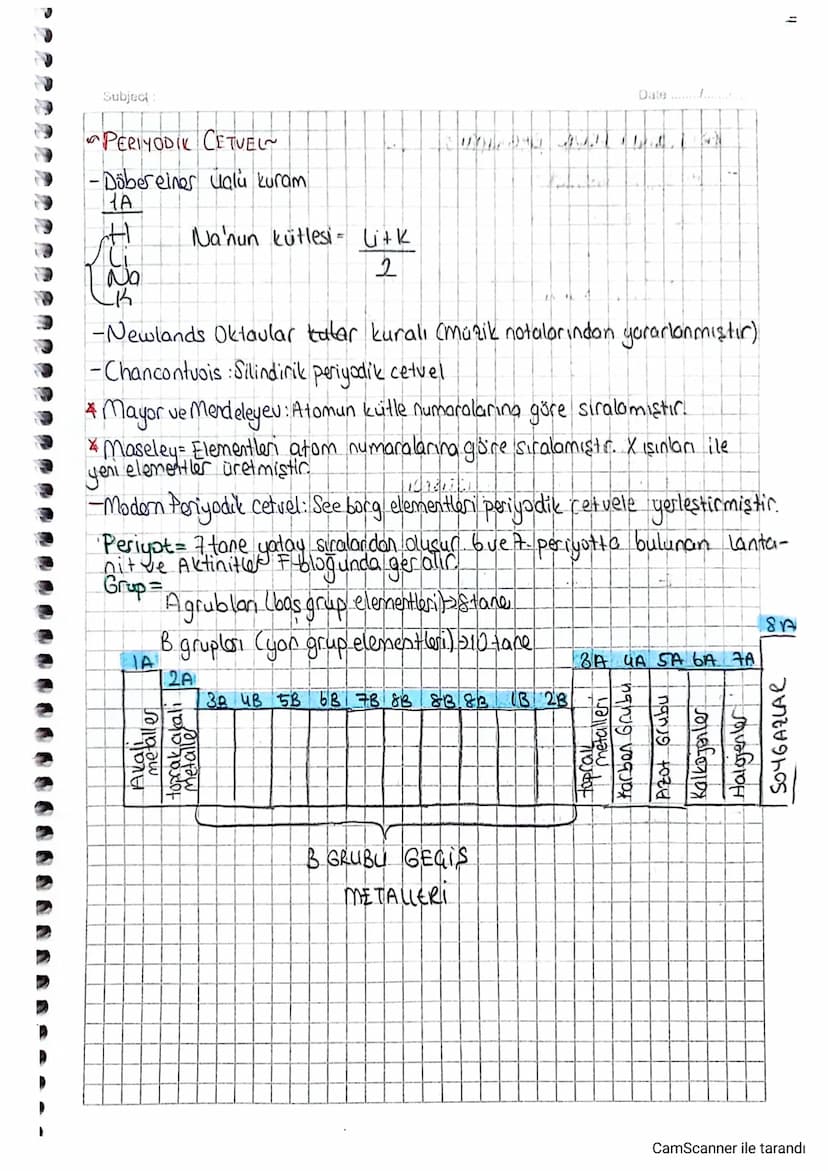 Subject:
Date ......./.......
~PERİYODİK CETVEL~
-Döbereiner üçlü kuram
1A
H
Li
Na
K
Na'nun kütlesi = Li+K
2
-Newlands Oktavlar kuralı (müzik notalarından yararlanmıştır)
-Chancontuois : Silindirik periyodik cetvel
* Mayor ve Mendeleyev : Atomun kütle numaralarına göre sıralamıştır.
* Maseley= Elementleri atom numaralarına göre sıralamıştr. X ışınları ile
yeni elementler üretmiştir.
-Modern Periyodik cetvel: See borg elementleri periyodik cetvele yerleştirmiştir.
Periyot= 7 tane yatay sıralardan oluşur. 6 ve 7. periyotta bulunan Lanta-
nit ve Aktinitler F bloğunda yer alır.
Grup=
A grubları (baş grup elementleri)→8 tane
B grupları (yan grup elementleri)→10 tane
8A
1A 3A 4A 5A 6A 7A
2A
3B 4B 5B 6B 7B 8B 8B 8B 1B 2B
Alkali metaller
toprak alkali metaller
toprak metalleri
karbon Grubu
Azot Grubu
Kalkojenler
Halojenler
SOYGAZLAR
B GRUBU GEÇİŞ
METALLERİ
CamScanner ile tarandı